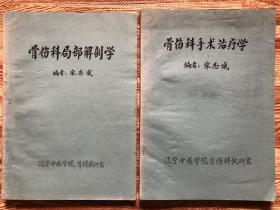 骨伤科局部解剖学
编者：宋志成
辽宁中医学院骨科教研室
骨伤科手术治疗学
编者：宋志成
辽宁中医学院骨伤科教研室